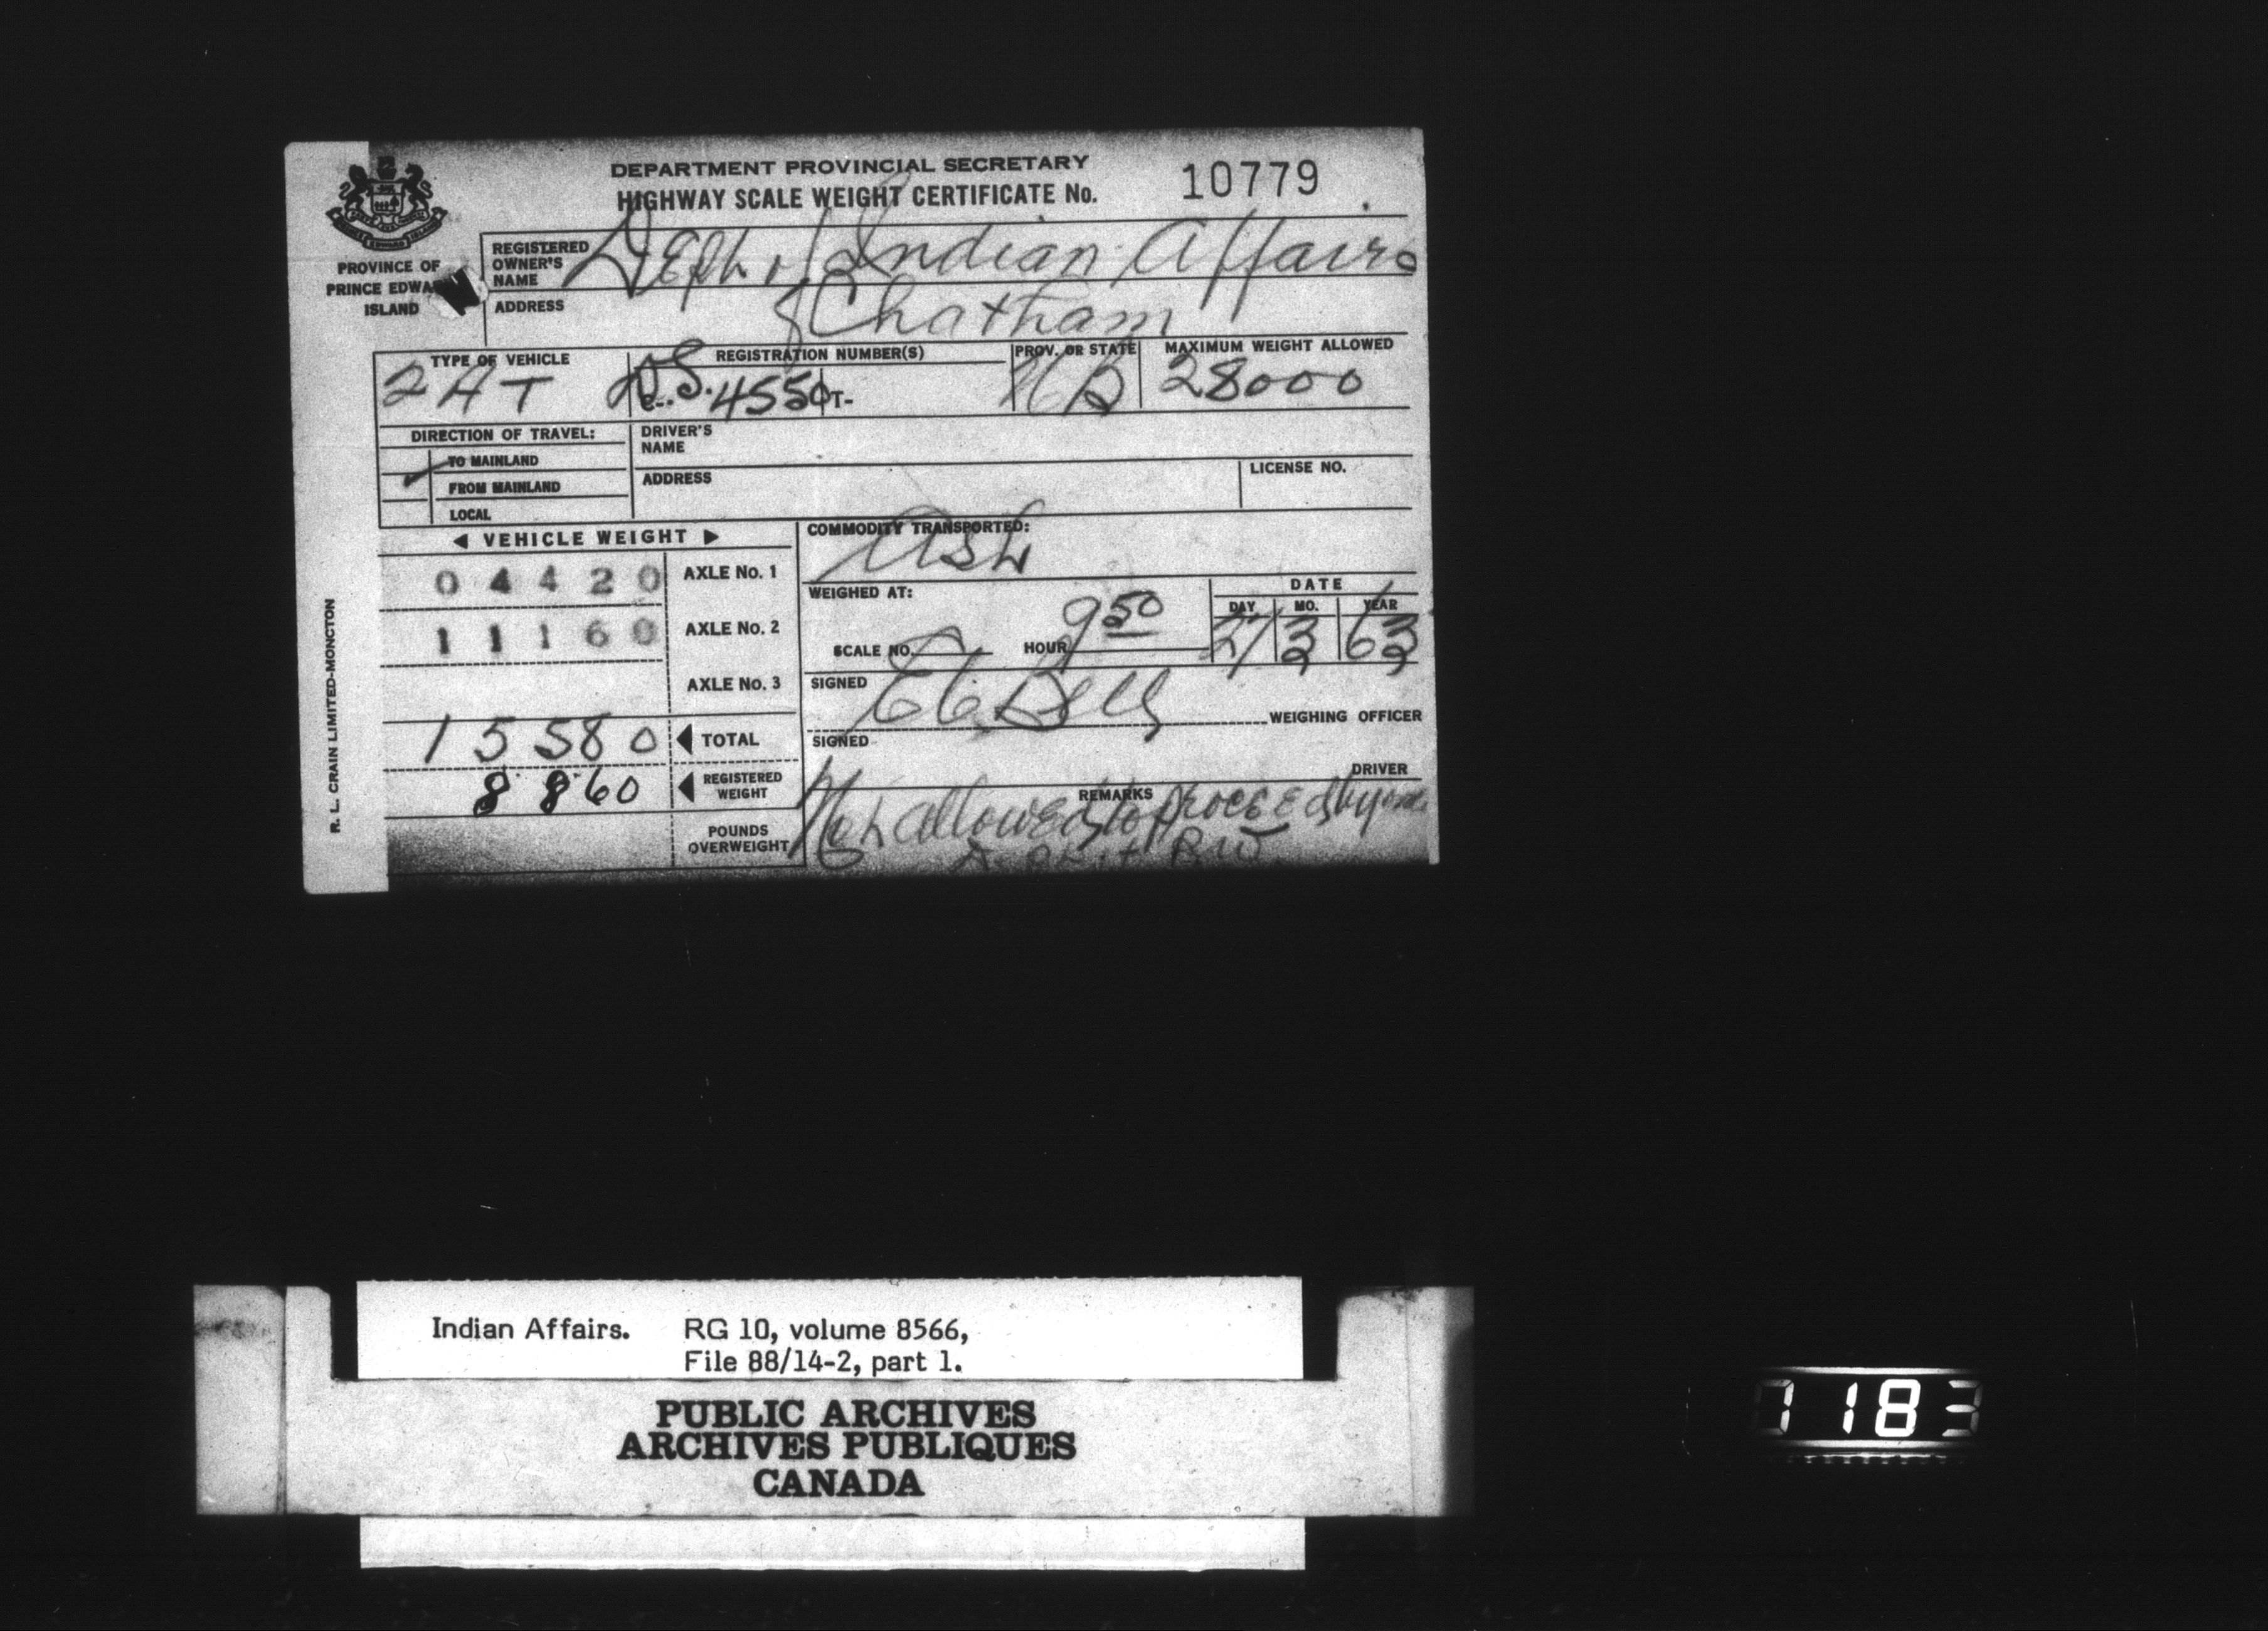 DEPARTMENT PROVINCIAL SECRETARY
HIGHWAY SCALE WEIGHT CERTIFICATE No. 10779
PROVINCE OF
PRINCE EDWA
ISLAND
REGISTERED
OWNER'S
NAME
Dept. of Indian Affairs
ADDRESS
Chatham
TYPE OF VEHICLE
2 A T
REGISTRATION NUMBER(S)
C-. 4550 T-
PROV. OR STATE
NB
MAXIMUM WEIGHT ALLOWED
28000
DIRECTION OF TRAVEL:
TO MAINLAND
FROM MAINLAND
LOCAL
DRIVER'S
NAME
ADDRESS
LICENSE NO.
◀ VEHICLE WEIGHT ▶
04420 AXLE No. 1
11160 AXLE No. 2
AXLE No. 3
15580 ◀ TOTAL
8860 ◀ REGISTERED
WEIGHT
POUNDS
OVERWEIGHT
COMMODITY TRANSPORTED:
Ash
WEIGHED AT:
SCALE NO.
HOUR 9 50
DATE
DAY MO. YEAR
27 3 63
SIGNED
WEIGHING OFFICER
SIGNED
DRIVER
REMARKS
Not allowed to proceed
R. L. CRAIN LIMITED-MONCTON
Indian Affairs. RG 10, volume 8566,
File 88/14-2, part 1.
PUBLIC ARCHIVES
ARCHIVES PUBLIQUES
CANADA
7183